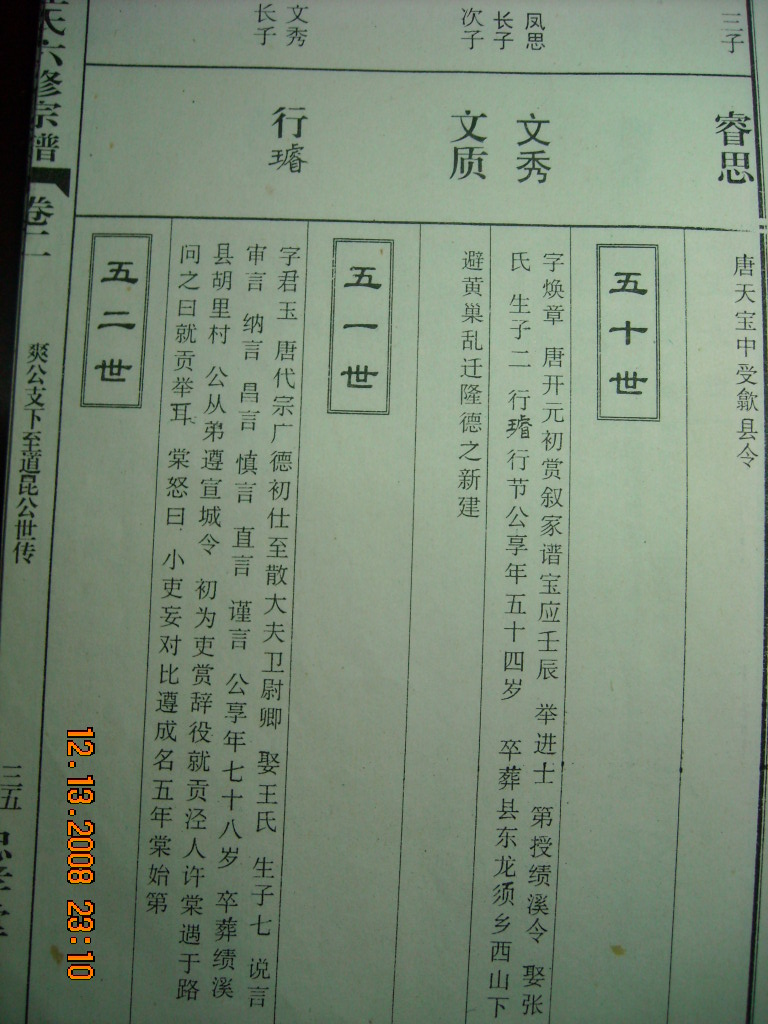 三子
睿思
唐天宝中受歙县令
五十世
凤思
长子
文秀
字焕章 唐开元初赏叙家谱宝应壬辰 举进士 第授绩溪令 娶张
氏 生子二 行瑃行节公享年五十四岁 卒葬县东龙须乡西山下
次子
文质
避黄巢乱迁隆德之新建
五一世
文秀
长子
行瑃
字君玉 唐代宗广德初仕至散大夫卫尉卿 娶王氏 生子七 说言
审言 纳言 昌言 慎言 直言 谨言 公享年七十八岁 卒葬绩溪
县胡里村 公从弟遵宣城令 初为吏赏辞役就贡泾人许棠遇于路
问之曰就贡举耳 棠怒曰 小吏妄对比遵成名五年棠始第
五二世
氏六修宗谱
卷二
爽公支下至道昆公世传
三五
12.13.2008 23:10